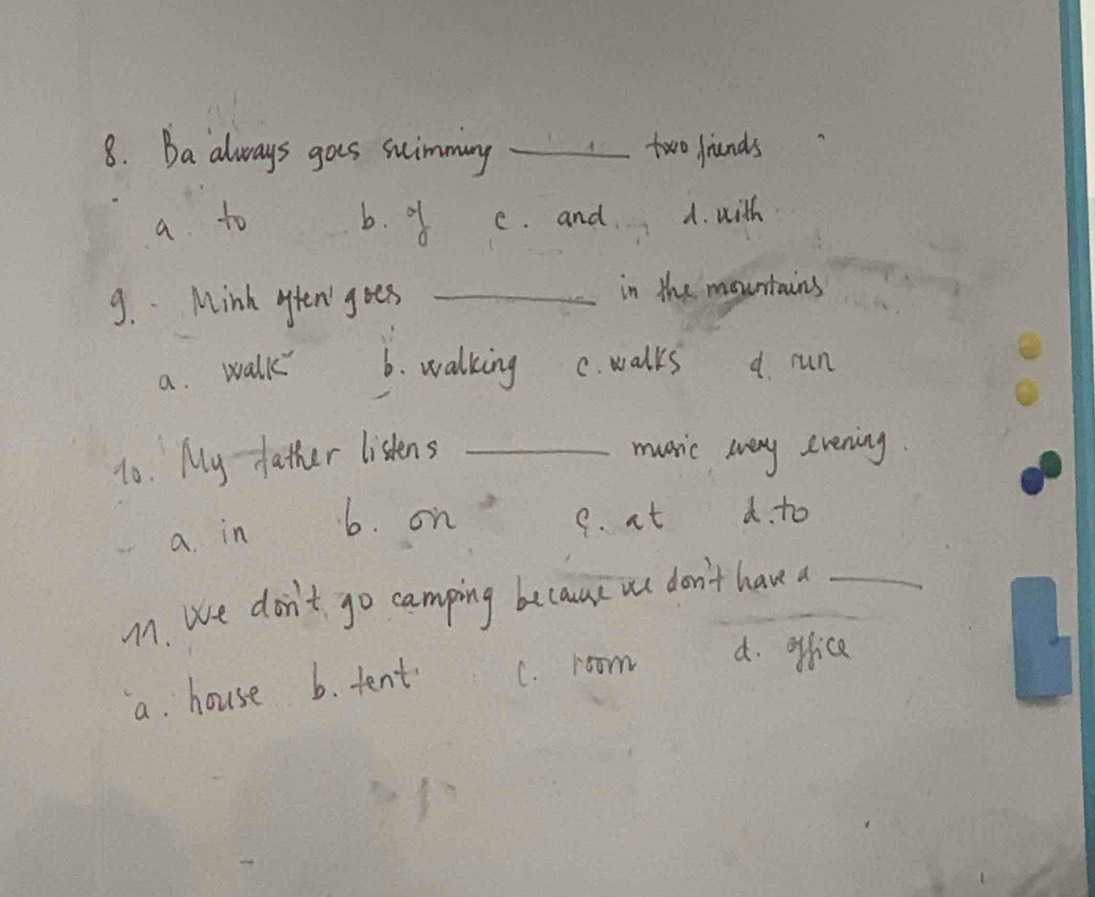 8. Ba always goes swimming ______ two friends
a. to b. of c. and d. with
9. Minh often goes ______ in the mountains
a. walk b. walking c. walks d. run
10. My father listens ______ music every evening.
a. in b. on c. at d. to
11. We don't go camping because we don't have a ______
a. house b. tent c. room d. office